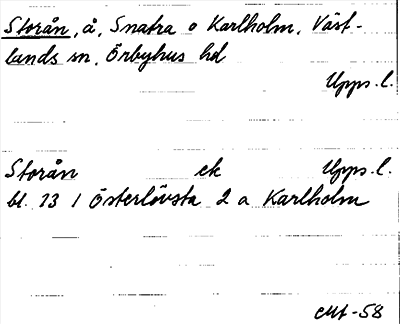 Storån, å, Snatra o Karlholm, Väst-
lands sn, Örbyhus hd
Upps. l.
Storån ek Upps. l.
bl. 73 1 Österlövsta 2 a Karlholm
-58